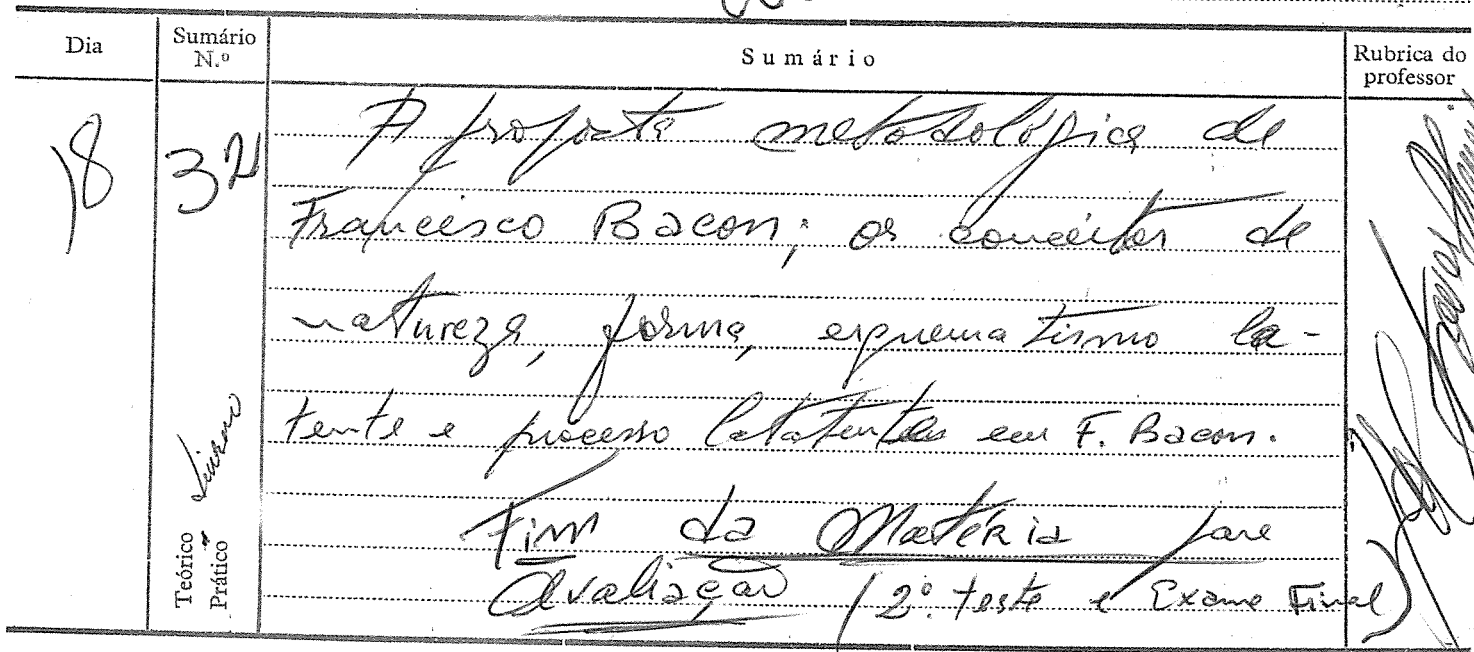 Dia
Sumário N.º
Sumário
Rubrica do professor
18
32
A proposta metodológica de
Francisco Bacon; os conceitos de
natureza, forma, esquematismo la-
tente e processo latatentes em F. Bacon.
Fim da Matéria para
Avaliação (2.º teste e Exame Final)
Teórico
Prático